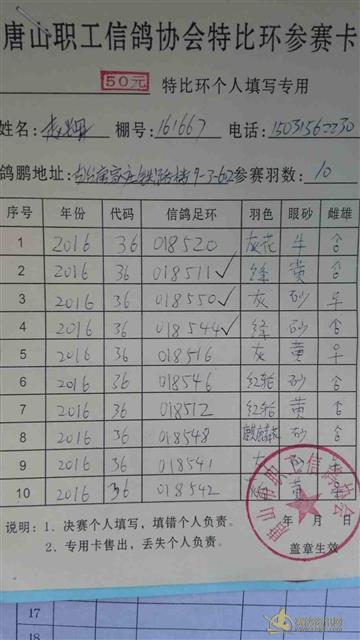 唐山职工信鸽协会特比环参赛卡
50元 特比环个人填写专用
姓名: 棚号:161667 电话:
鸽鹏地址: 9-3-602 参赛羽数:10
序号 年份 代码 信鸽足环 羽色 眼砂 雌雄
1 2016 36 018520 灰花 牛
2 2016 36 018511 ✓ 绛 黄
3 2016 36 018550 ✓ 灰 砂
4 2016 36 018544 ✓ 绛 砂
5 2016 36 018516 灰 黄
6 2016 36 018546 砂
7 2016 36 018512 黄
8 2016 36 018548 砂
9 2016 36 018541
10 2016 36 018542 黄
唐山市职工信鸽协会
年 月 日
说明:1、决赛个人填写,填错个人负责。
2、专用卡售出,丢失个人负责。
盖章生效
17
18